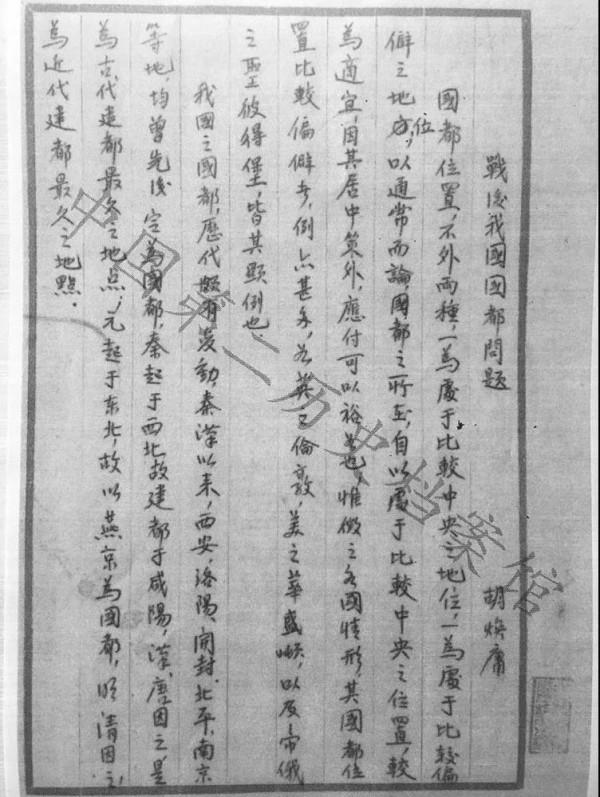 戰後我國國都問題
胡煥庸
國都位置,不外兩種,一為處于比較中央之地位,一為處于比較偏
僻之地位,以通常而論,國都之所在,自以處于比較中央之位置,較
為適宜,因其居中策外,應付可以裕如也,惟徵之各國情形,其國都位
置比較偏僻者,例亦甚多,若英之倫敦,美之華盛頓,以及帝俄
之聖彼得堡,皆其顯例也.
我國之國都,歷代頗有變動,秦漢以來,西安,洛陽,開封,北平,南京
等地,均曾先後定為國都,秦起于西北故建都于咸陽,漢,唐因之,是
為古代建都最久之地点;元起于东北,故以燕京為國都,明清因之,
為近代建都最久之地點.
中国第二历史档案馆